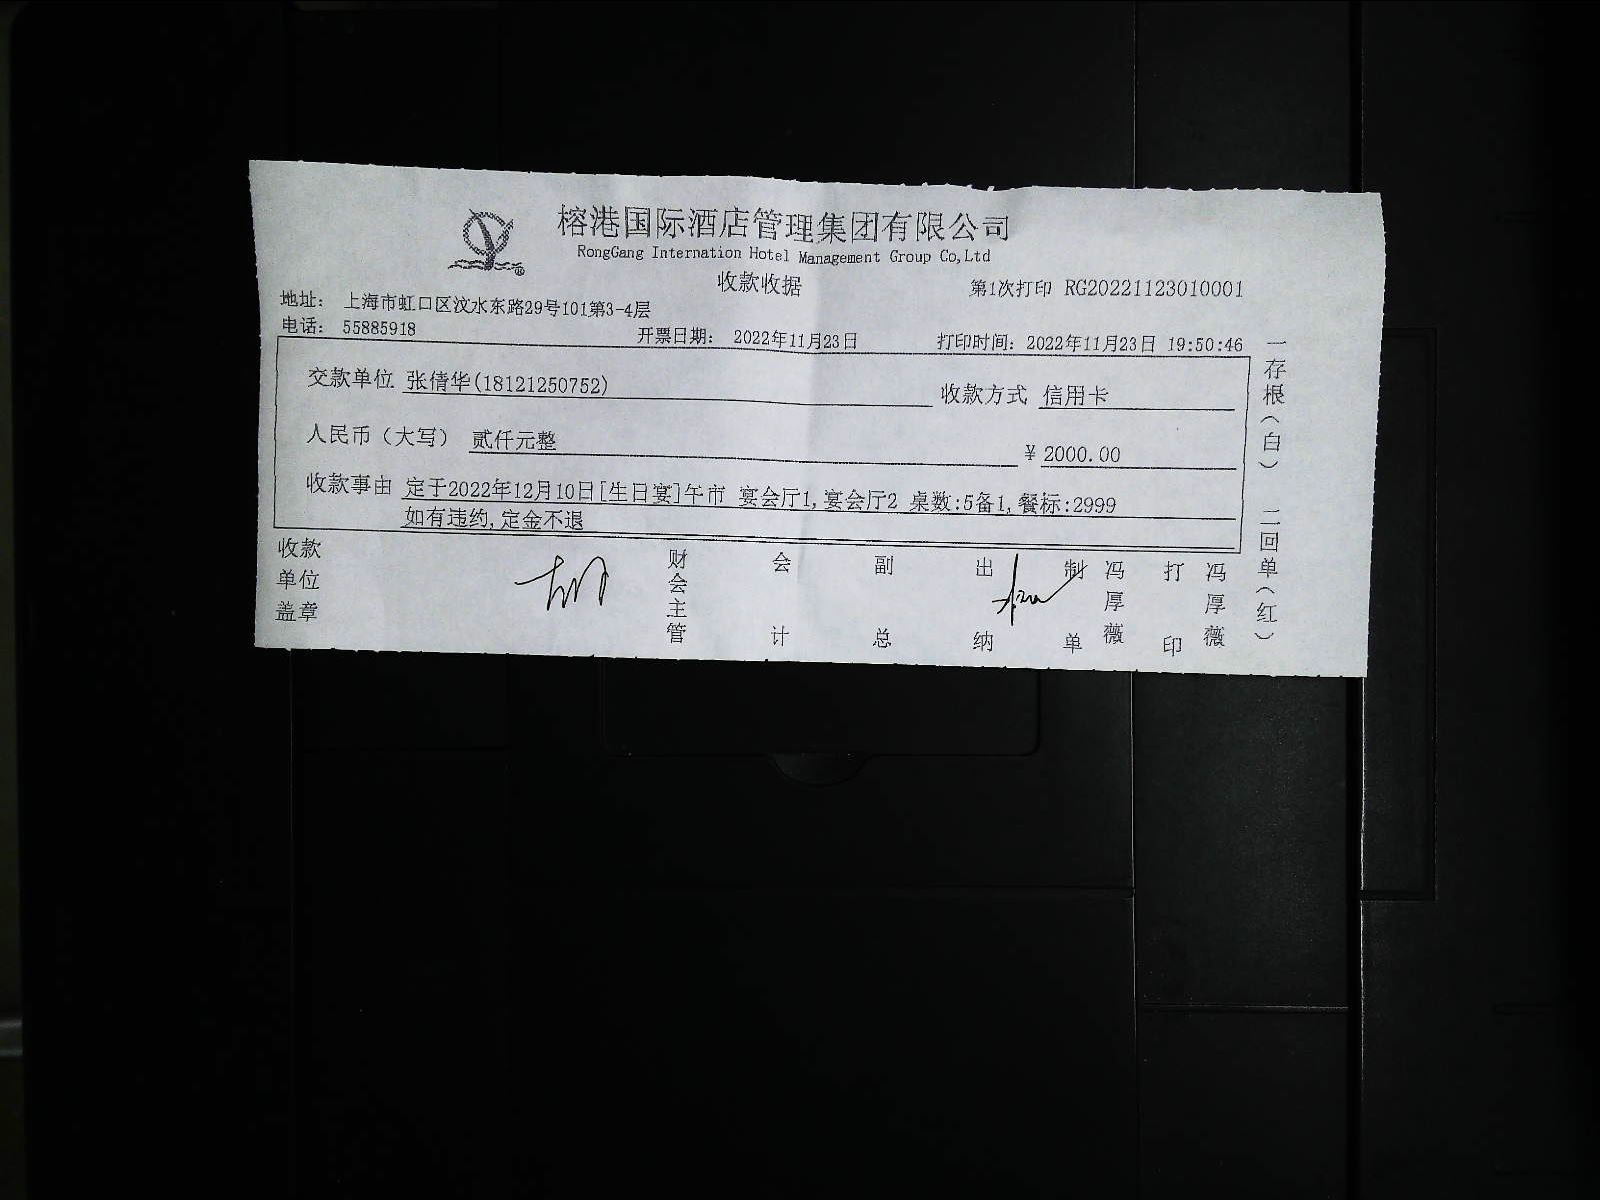 榕港国际酒店管理集团有限公司
RongGang Internation Hotel Management Group Co,Ltd
收款收据
第1次打印 RG20221123010001
地址： 上海市虹口区汶水东路29号101第3-4层
电话： 55885918
开票日期： 2022年11月23日
打印时间：2022年11月23日 19:50:46
交款单位 张倩华(18121250752)
收款方式 信用卡
人民币（大写） 贰仟元整
￥2000.00
收款事由 定于2022年12月10日[生日宴]午市 宴会厅1,宴会厅2 桌数:5备1,餐标:2999
如有违约,定金不退
收款单位盖章
财会主管
会计
副总
出纳
制单
冯厚薇
打印
冯厚薇
一存根（白） 二回单（红）